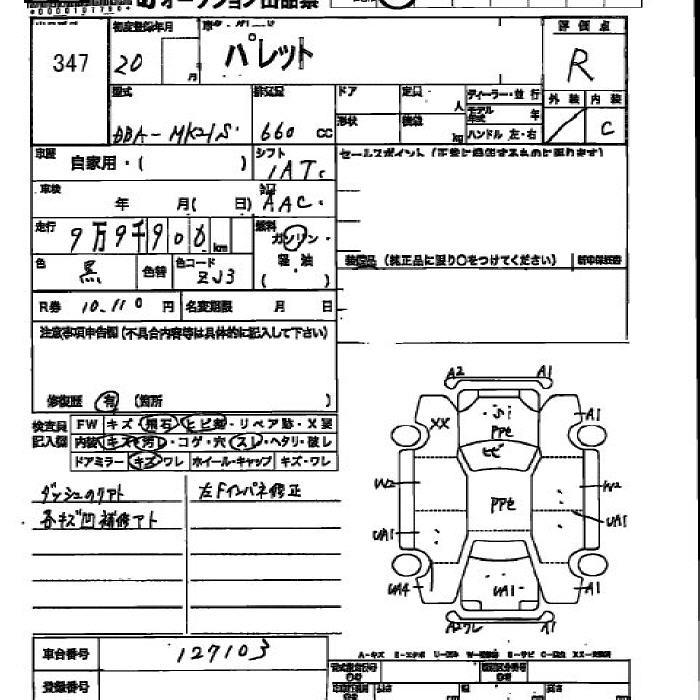 オークション出品票
347
初度登録年月
20
月
車名
パレット
評価点
R
外装 内装
C
型式
DBA-MK21S
排気量
660 cc
ドア
定員
人
形状
積載
kg
ディーラー・並行
モデル年式 年
ハンドル 左・右
車歴
自家用・( )
シフト
IAT
セールスポイント (正常に機能するものに限ります)
車検
年 月( 日)
AAC
走行
9万9千900 km
燃料
ガソリン・
軽油
( )
色
黒
色替
色コード
ZJ3
装備品 (純正品に限り○をつけてください)
新車保証書
R券
10.110 円
名変期限 月 日
注意事項申告欄 (不具合内容等は具体的に記入して下さい)
修復歴 有 (箇所 )
検査員記入欄
FW キズ・飛石・ヒビ割・リペア跡・X要
内装 キズ・汚レ・コゲ・穴・スレ・ヘタリ・破レ
ドアミラー キズ・ワレ ホイール・キャップ キズ・ワレ
ダッシュのりアト
各キズ凹補修アト
左Fインパネ修正
A2 A1
XX
A1
PPセ
ヒビ
W2
PPセ
W2
UA1
UA1
UA4
UA1
A1
A2ワレ A1
車台番号
127103
登録番号
A-キズ